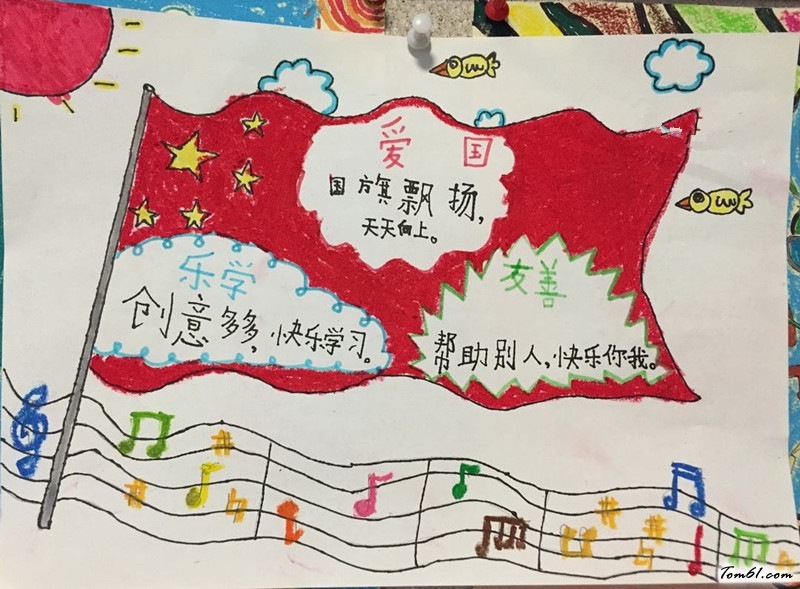 爱 国
国旗飘扬,
天天向上。
乐学
创意多多,快乐学习。
友善
帮助别人,快乐你我。
Tom61.com